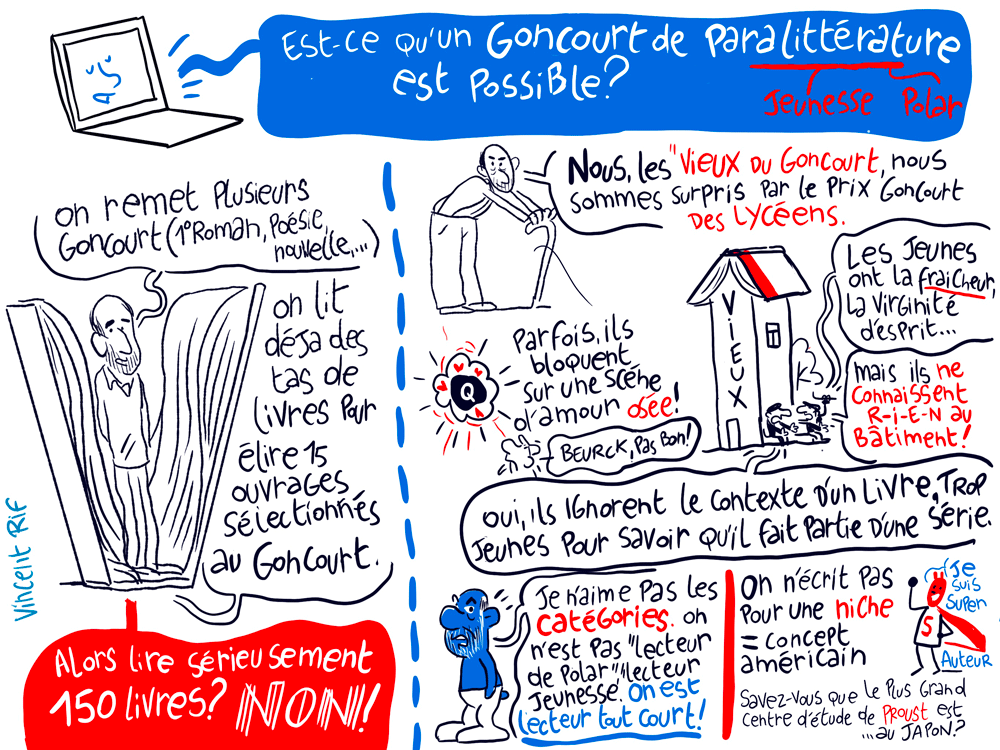 Est-ce qu'un Goncourt de Paralittérature
est possible?
Jeunesse Polar
on remet plusieurs
Goncourt (1° Roman, Poésie,
nouvelle,...)
on lit
déjà des
tas de
livres pour
élire 15
ouvrages
sélectionnés
au Goncourt.
Alors lire sérieusement
150 livres? NON!
Vincent Rif
Nous, les "Vieux du Goncourt, nous
sommes surpris par le prix Goncourt
des Lycéens.
Les jeunes
ont la fraîcheur,
la virginité
d'esprit...
mais ils ne
connaissent
R-i-E-N au
Bâtiment!
VIEUX
Parfois, ils
bloquent
sur une scène
d'amour osée!
Q
Beurck, Pas Bon!
Oui, ils ignorent le contexte d'un livre, trop
jeunes pour savoir qu'il fait partie d'une série.
Je n'aime pas les
catégories. on
n'est pas "lecteur
de Polar" "lecteur
jeunesse". on est
lecteur tout court!
On n'écrit pas
pour une niche
= concept
américain
Je
suis
Super
S
Auteur
Savez-vous que le plus grand
centre d'étude de Proust est
...au Japon?